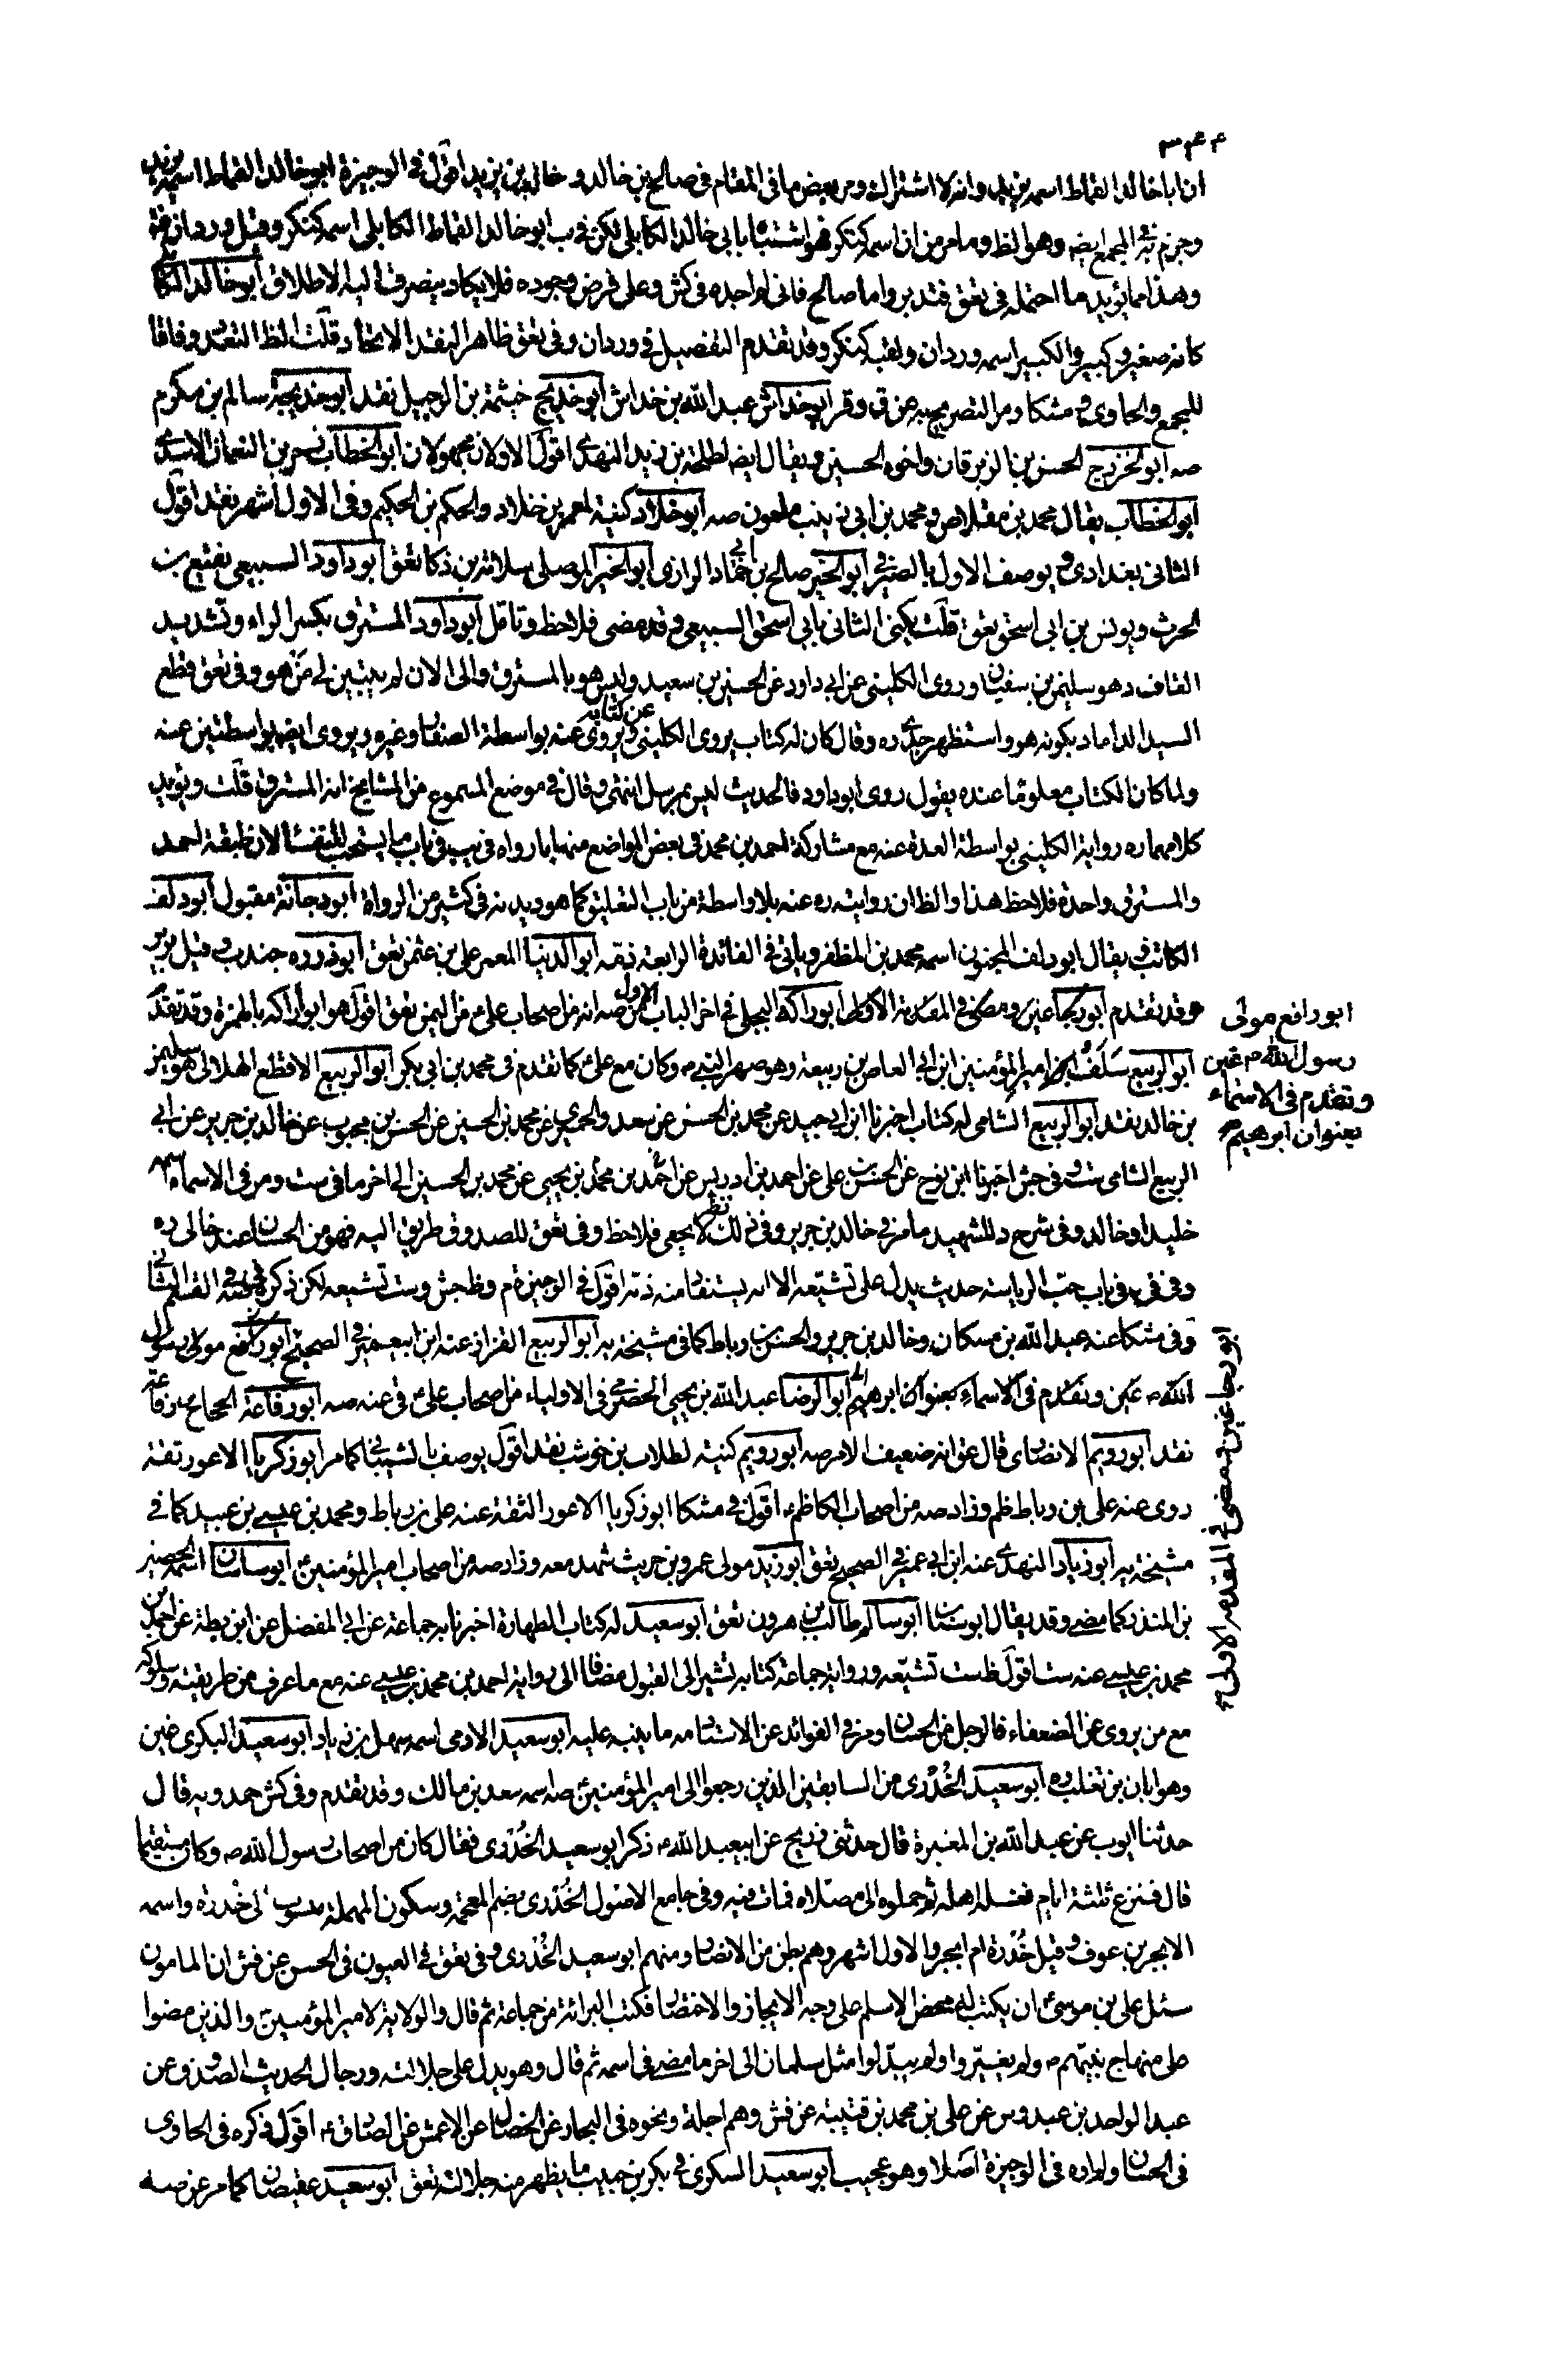 ان ابا خالد القماط اسمه يزيد وانه لا اشتراك ومر بعض ما في المقام في صالح بن خالد و خالد بن يزيد اقول في الوجيزة ابو خالد القماط اسمه يزيد
وجزم به المجمع ايضه وهو الظ وما مر من ان اسمه كنكر فهو اشتباه بابي خالد الكابلي لكن في ب ابو خالد القماط الكابلي اسمه كنكر وقيل وردان
وهذا مما يؤيد ما احتمله في تعق فتدبر واما صالح فاني لم اجده في كش وعلى فرض وجوده فلا يكاد ينصرف اليه الاطلاق ابو خالد
كانه صغير وكبير والكبير اسمه وردان ولقبه كنكر وقد تقدم التفصيل في وردان وفي تعق ظاهر النقد الاتحاد قلت الظ التعدد وفاقا
للمجمع والحاوي و مشكا ومر التصريح به عن ق وقر ابو خداش عبد الله بن خداش ابو خديج خيثمة بن الرحيل نقد ابو خديجة سالم بن مكرم
صه ابو الخزرج الحسن بن الزبرقان واخوه الحسين ويقال ايضه لطلحة بن زيد النهدي اقول الاولان مجهولان ابو الخطاب بن النعمان الاسدي
ابو الخطاب يقال محمد بن مقلاص و محمد بن ابي زينب ملعون صه ابو خلاد كنية لمعمر بن خلاد والحكم بن الحكيم وفي الاول اشهر نقد اقول
الثاني بغدادي و يوصف الاول بالصيرفي ابو الخير صالح بن ابي حماد الرازي ابو الخير الموصلي سلامة بن ذكا تعق ابو داود السبيعي نفيع بن
الحرث ويونس بن ابي اسحق تعق قلت يكنى الثاني بابي اسحق السبيعي وقد مضى فلاحظ وتامل ابو داود المسترق بكسر الراء وتشديد
القاف د هو سليمن بن سفيان وروى الكليني عن ابي داود عن الحسين بن سعيد وليس هو بالمسترق والى الان لم يتبين لي من هو وفي تعق قطع
السيد الداماد بكونه هو واستظهر جدي ره وقال كان له كتاب يروي الكليني عن كتابه ويروي عنه بواسطة الصفار وغيره ويروي ايضه بواسطتين عنه
ولما كان الكتاب معلوما عنده يقول روى ابو داود فالحديث ليس بمرسل انتهى وقال في موضع المسموع من المشايخ انه المسترق قلت ويؤيد
كلامهما ره رواية الكليني بواسطة العدة عنه مع مشاركة احمد بن محمد في بعض المواضع منها ما رواه في يب في باب ما يستحب للنفساء لان طبقة احمد
والمسترق واحدة فلاحظ هذا والظ ان روايته ره عنه بلا واسطة من باب التعليق كما هو ديدنه في كثير من الرواة ابو دجانة مقبول ابو دلف
الكاتب و يقال ابو دلف المجنون اسمه محمد بن المظفر وياتي في الفائدة الرابعة ذمه ابو الدنيا المعمر علي بن عثمن تعق ابو ذر ره جندب و قيل برير
وقد تقدم ابو رجا عين ومضى في المقدمة الاولى ابو راكة البجلي في اخر الباب الاول من صه انه من اصحاب علي من اليمن تعق اقول هو ابو اراكه بالهمزة وقد تقدم
ابو الربيع سلف امير المؤمنين ابن ابي العاص بن ربيعة وهو صهر النبي وكان مع علي كما تقدم في محمد بن ابي بكر ابو الربيع الاقطع الهلالي هو سليمن
بن خالد نقد ابو الربيع الشامي له كتاب اخبرنا ابن ابي جيد عن محمد بن الحسن عن سعد والحميري عن محمد بن الحسين عن الحسن بن محبوب عن خالد بن جرير عن ابي
الربيع الشامي ست وفي جش اخبرنا ابن نوح عن الحسن بن علي عن احمد بن ادريس عن محمد بن احمد بن يحيى عن محمد بن الحسين الى اخر ما في ست ومر في الاسماء
خليد او خالد وفي شرح د للشهيد ما مر في خالد بن جرير وفي ذلك نظر لا يخفى فلاحظ وفي تعق للصدوق طريق اليه فهو من الحسان عند خالي ره
وفي في في باب حب الرياسة حديث يدل على تشيعه الا انه يستفاد منه ذمه اقول في الوجيزة م وظ جش وست تشيعه لكن ذكره في القسم الثاني
وفي مشكا عنه عبد الله بن مسكان وخالد بن جرير والحسن بن رباط كما في مشيخة يه ابو الربيع القزاز عنه ابن ابي عمير في الصحيح ابو رافع مولى رسول
الله عين وتقدم في الاسماء بعنوان ابرهيم ابو الرضا عبد الله بن يحيى الحضرمي في الاولياء من اصحاب علي قي عنه صه ابو رفاعة الحجاج رفاعة
نقد ابو رويم الانصاري قال عق انه ضعيف الامر صه ابو رويم كنية لطلاب بن حوشب نقد اقول يوصف بالشيباني كما مر ابو زكريا الاعور ثقة
روى عنه علي بن رباط ظم وزاد صه من اصحاب الكاظم اقول في مشكا ابو زكريا الاعور الثقة عنه علي بن رباط ومحمد بن عيسى بن عبيد كما في
مشيخة يه ابو زياد النهدي عنه ابن ابي عمير في الصحيح تعق ابو زيد مولى عمرو بن حريث شهد معه وزاد صه من اصحاب امير المؤمنين ابو ساسان اسمه الحصين
بن المنذر كما مضى وقد يقال ابو سنان ابو سالم طالب بن هرون تعق ابو سعيد له كتاب الطهارة اخبرنا به جماعة عن ابي المفضل عن ابن بطة عن احمد بن
محمد بن عيسى عنه ست اقول ظ ست تشيعه ورواية جماعة كتابه تشير الى القبول مضافا الى رواية احمد بن محمد بن عيسى عنه مع ما عرف من طريقته وسلوكه
مع من يروي عن الضعفاء فالرجل من الحسان ومر في الفوائد عن الاستاد مد ما ينبه عليه ابو سعيد الادمي اسمه سهل بن زياد ابو سعيد البكري ضين
وهو ابان بن تغلب ره ابو سعيد الخدري من السابقين الذين رجعوا الى امير المؤمنين صه اسمه سعد بن مالك وقد تقدم وفي كش حمدويه قال
حدثنا ايوب عن عبد الله بن المغيرة قال حدثني ذريح عن ابي عبد الله ذكر ابو سعيد الخدري فقال كان من اصحاب رسول الله ص وكان مستقيما
قال فنزع ثلثة ايام فغسله اهله ثم حملوه الى مصلاه فمات فيه وفي جامع الاصول الخدري بضم المعجمة وسكون المهملة منسوب الى خدرة واسمه
الابجر بن عوف وقيل خدرة ام ابجر والاول اشهر وهم بطن من الانصار ومنهم ابو سعيد الخدري و في تعق في العيون في الحسن عن فش ان المامون
سئل علي بن موسى ان يكتب له محض الاسلم على وجه الايجاز والاختصار فكتب البرائة من جماعة ثم قال والولاية لامير المؤمنين والذين مضوا
على منهاج نبيهم ولم يغيروا ولم يبدلوا مثل سلمان الى اخر ما مضى في اسمه ثم قال وهو يدل على جلالته ورجال الحديث الصدوق عن
عبد الواحد بن عبدوس عن علي بن محمد بن قتيبة عن فش وهم اجلة ونحوه في البحار عن الخصال عن الاعمش عن الصادق اقول ذكره في الحاوي
في الحسان ولم اره في الوجيزة اصلا وهو عجيب ابو سعيد السكري في بكر بن حبيب ما يظهر منه جلالته تعق ابو سعيد عقيصان كما مر عن صه
ابو رافع مولى
رسول الله ص عين
وتقدم في الاسماء
بعنوان ابرهيم
ابو رجا عين مضى في المقدمة الاولى